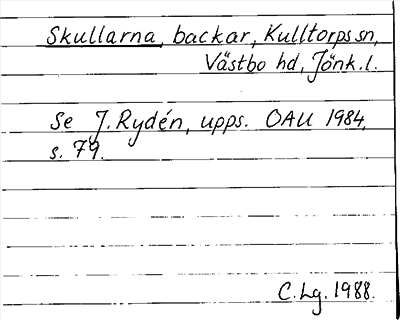 Skullarna, backar, Kulltorps sn,
Västbo hd, Jönk.l.
Se J. Rydén, upps. OAU 1984,
s. 79.
C. Lg. 1988.